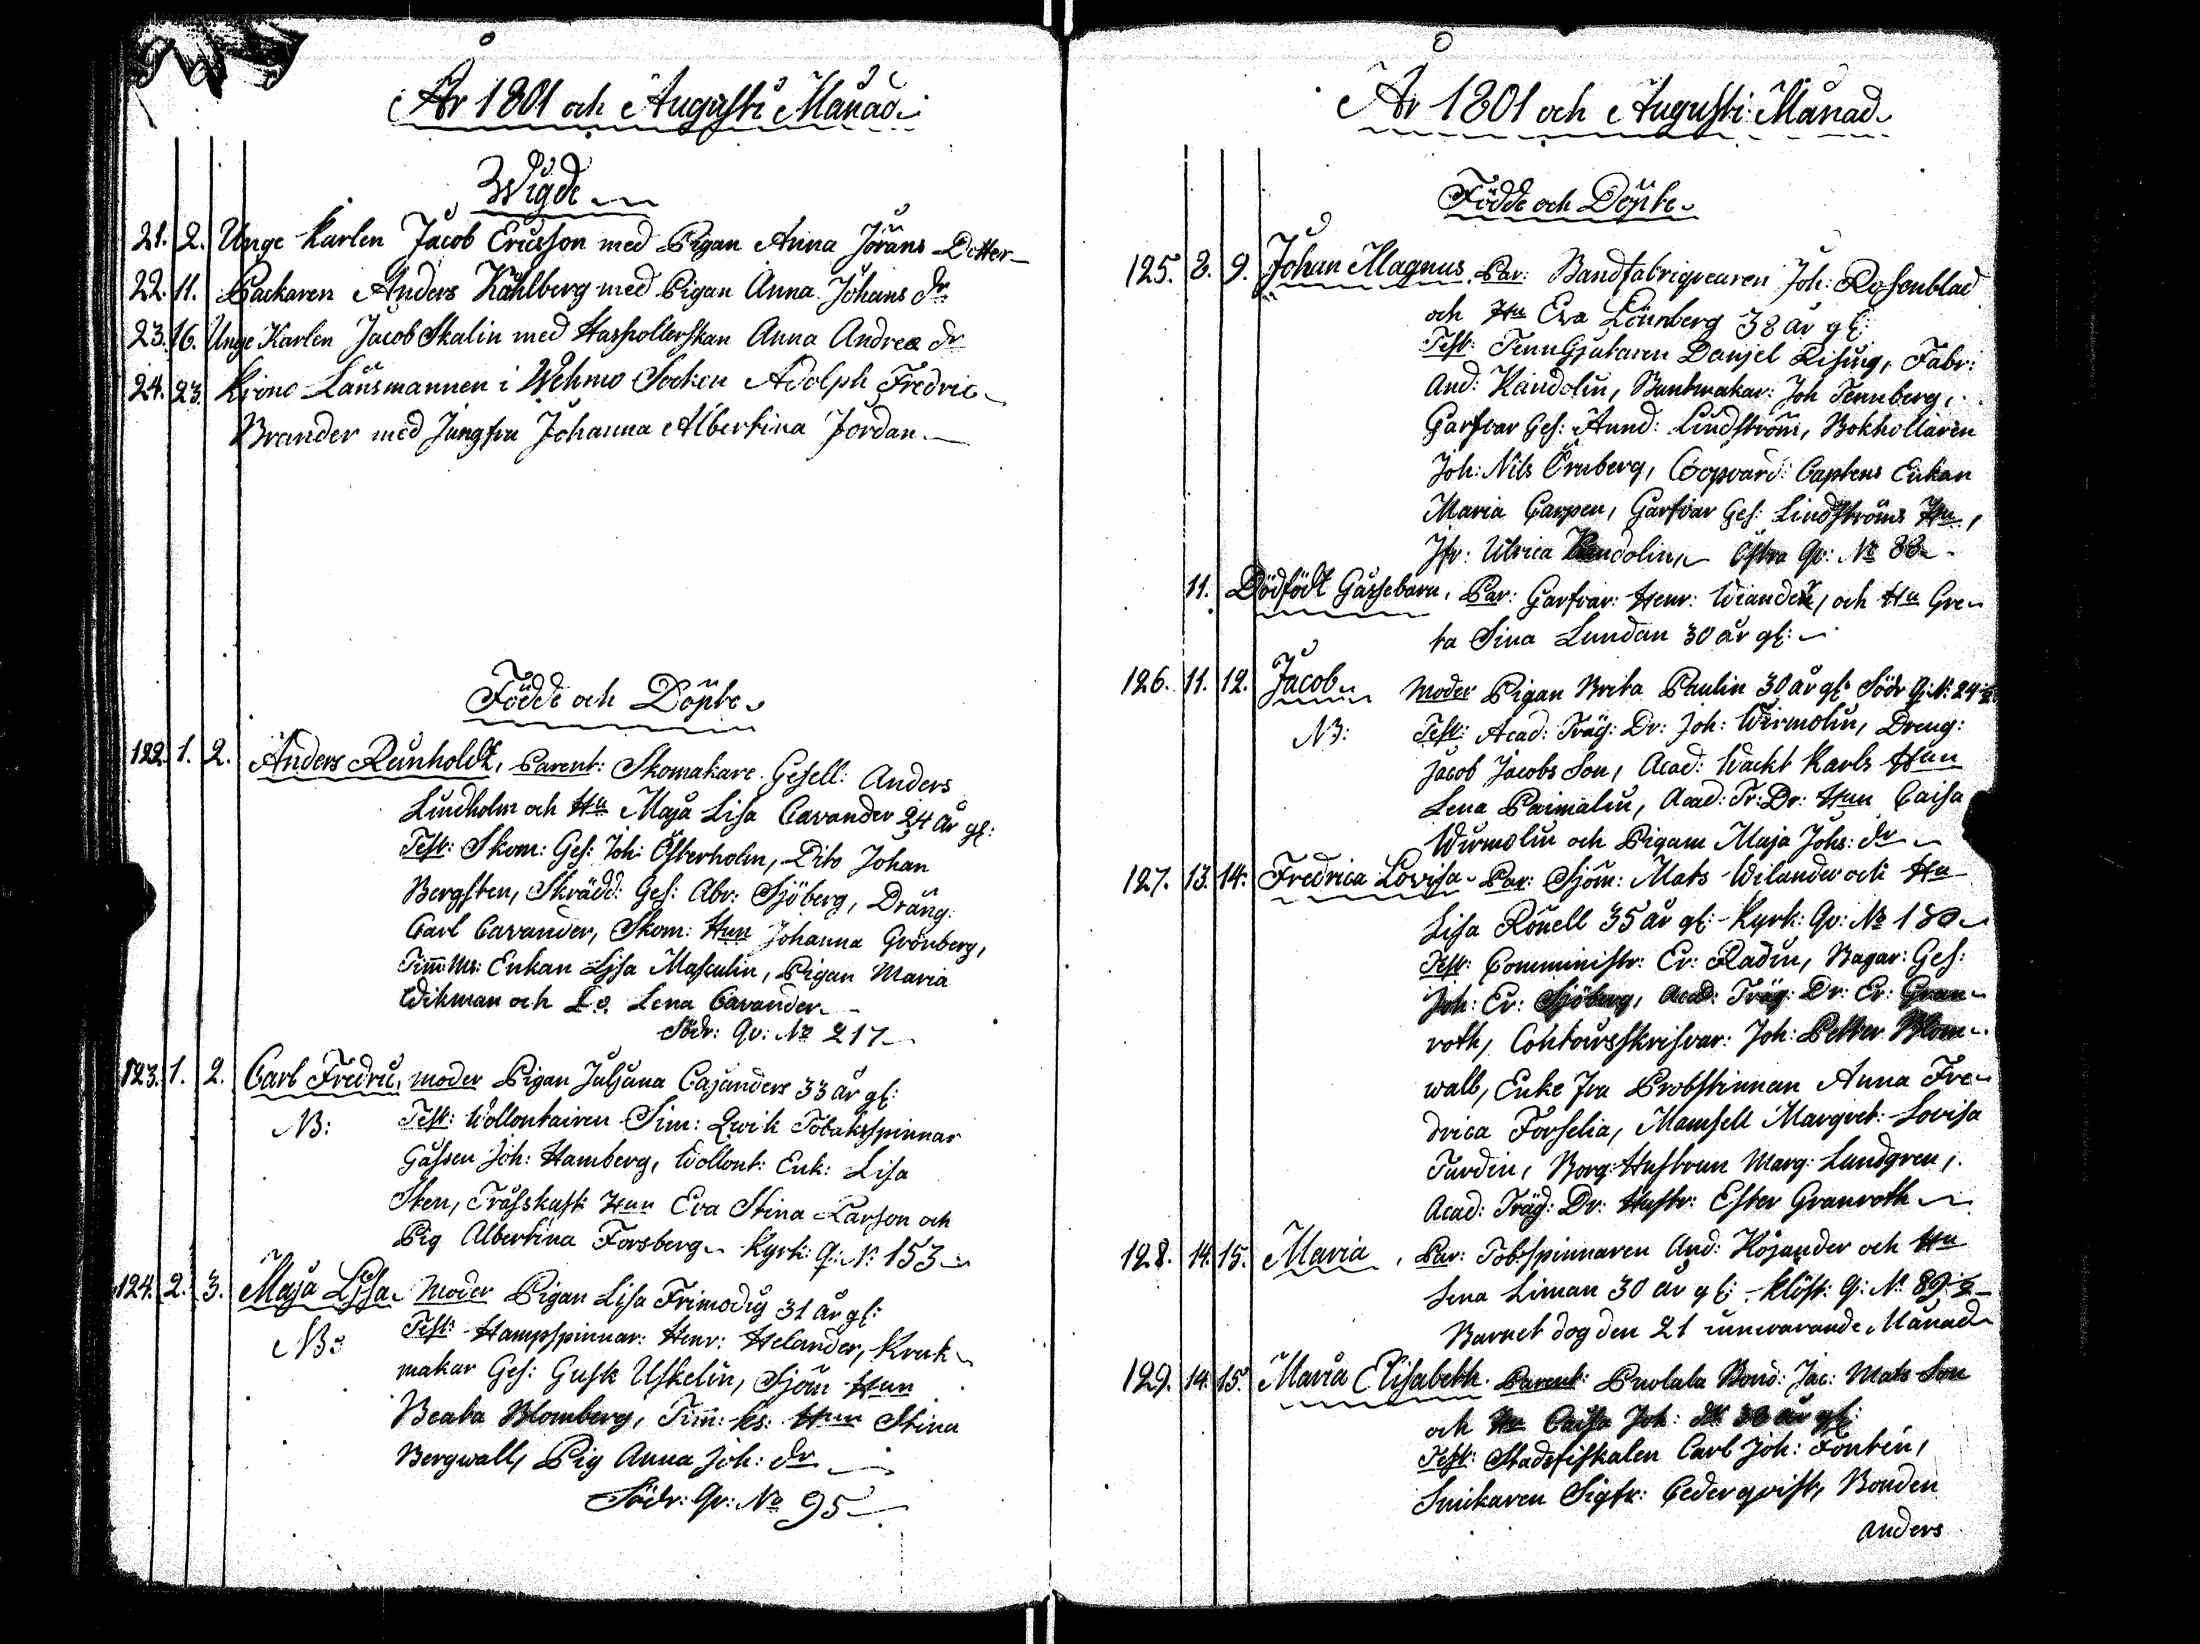 År 1801 och Augusti Månad
Wigde
21. 2. Unge Karlen Jacob Ericsson med Pigan Anna Jörans Dotter
22. 11. Packaren Anders Kahlberg med Pigan Anna Johans dr
23. 16. Unge Karlen Jacob Skalin med Hushollerskan Anna Andreæ dr
24. 23. Krono Länsmannen i Wehmo Socken Adolph Fredric
Brander med Jungfru Johanna Albertina Jordan.
Födde och Döpte
122. 1. 2. Anders Reinholdt, Parent: Skomakare Gesell: Anders
Lindholm och Hu Maja Lisa Cavander 24 år gl:
Test: Skom: Ges: Joh: Österholm, Dito Johan
Bergsten, Skrädd: Ges: Abr: Sjöberg, Dräng:
Carl Cavander, Skom: Hun Johanna Grönberg,
Enkan Lisa Masculin, Pigan Maria
Wikman och Lena Cavander
Södr: Qv: No 217
123. 1. 2. Carl Fredric, moder Pigan Juljana Cajanders 33 år gl:
NB: Test: Wollontairen Sim: Qwik Tobaksspinnar
Gåssen Joh: Hamberg, Wollont: Enk: Lisa
Sten, Hun Eva Stina Larson och
Pig Albertina Forsberg. Kyrk: q: No 153
124. 2. 3. Maja Lisa. Moder Pigan Lisa Frimodig 31 år gl:
NB: Test: Hampspinnar: Henr: Helander, Kruk
makar Ges: Gust Uskelin, Sjöm Hun
Beata Blomberg, Tim: ks: Hun Stina
Bergwall, Pig Anna Joh: dr
Södr: Qv: No 95
År 1801 och Augusti Månad
Födde och Döpte
125. 8. 9. Johan Magnus. Par: Bandfabriqvearen Joh: Rosenblad
och Hu Eva Lönnberg 38 år gl:
Test: TennGjutaren Danjel Rising, Fabr:
And: Kandolin, Buntmakar: Joh Tennberg,
Garfvar Ges: Annd: Lindström, Bokhollaren
Joh: Nils Örnberg, Coopvard: Captens Enkan
Maria Carpen, Garfvar Ges: Lindströms Hu,
Jfr: Ulrica Kandolin, Östra Qv: No 88
11. Dödfödt Gåssebarn, Par: Garfvar: Henr: Wianden, och Hu Gre
ta Stina Lundan 30 år gl:
126. 11. 12. Jacob Moder Pigan Brita Paulin 30 år gl: Södr Q: N: 24
NB: Test: Acad: Träg: Dr: Joh: Wirmolin, Dreng:
Jacob Jacobs Son, Acad: Wackt Karls Hun
Lena Paimalin, Acad: Tr: Dr: Hun Caisa
Wirmolin och Pigam Maja Johs: dr
127. 13. 14. Fredrica Lovisa. Par: Sjöm: Mats Wilander och Hu
Lisa Rönell 35 år gl: Kyrk: Qv: No 180
Test: Comministr: Er: Radin, Bagar: Ges:
Joh: Er: Sjöberg, Acad: Träg: Dr: Er: Gran
roth, Contoursskrifvar: Joh: Petter Blom
wall, Enke fru Probstinnan Anna Fre
drica Forselia, Mamsell Margret: Lovisa
Turdin, Borg: Hustrun Marg: Lundgren,
Acad: Träg: Dr: Hustr: Ester Granroth
128. 14. 15. Maria, Par: Tob:spinnaren And: Höjander och Hu
Lena Liman 30 år gl: Klöst: Q: No 89
Barnet dog den 21 innevarande Månad
129. 14. 15. Maria Elisabeth. Parent: Puolala Bond: Jac: Mats Son
och Hu Caisa Joh: dr 38 år gl:
Test: Stadsfiskalen Carl Joh: Fontin,
Snikaren Sigfr: Cederqvist, Bonden
Anders